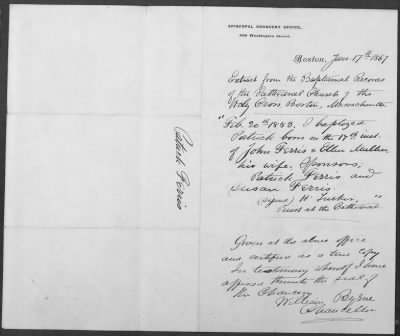 EPISCOPAL CHANCERY OFFICE,
Washington Street.
Boston, Jan. 17th 1867
Extract from the Baptismal Records
of the Cathedral Church of the
Holy Cross Boston, Massachusetts
"Feb. 20th 1853. I baptized
Patrick born on the 17th inst.
of John Ferris & Ellen
his wife. Sponsors;
Patrick Ferris and
Susan Ferris.
(signed) H. Tucker, "
Priest at the Cathedral
Given at the above office
and certified as a true copy
In testimony whereof I have
affixed thereto the seal of
the Chancery
William Byrne
Chancellor
Patrick Ferris